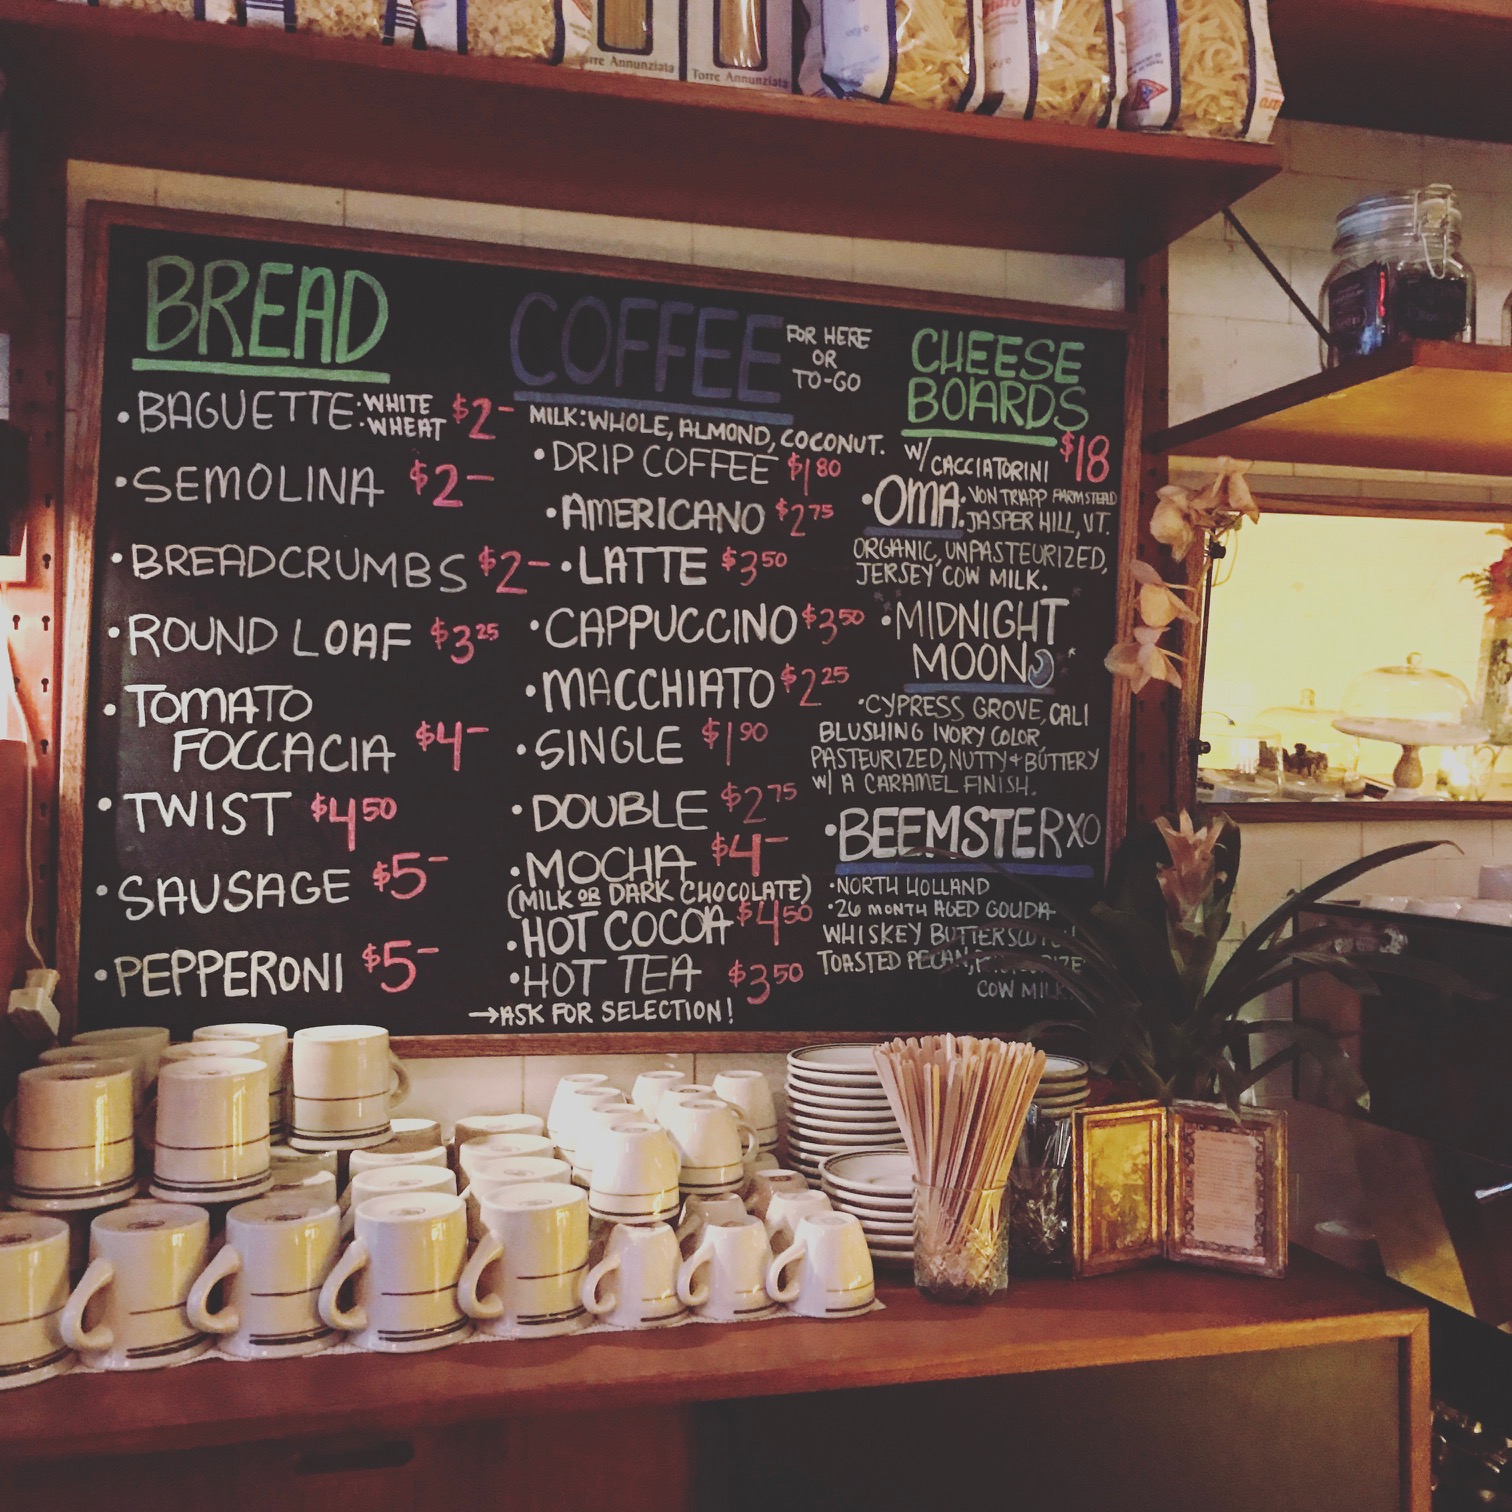 Torre Annunziata
Torre Annunziata
BREAD
• BAGUETTE • WHITE $2-
• WHEAT
• SEMOLINA $2-
• BREADCRUMBS $2-
• ROUND LOAF $3 25
• TOMATO
FOCCACIA $4-
• TWIST $4 50
• SAUSAGE $5-
• PEPPERONI $5-
COFFEE
FOR HERE
OR
TO-GO
MILK: WHOLE, ALMOND, COCONUT.
• DRIP COFFEE $1 80
• AMERICANO $2 75
• LATTE $3 50
• CAPPUCCINO $3 50
• MACCHIATO $2 25
• SINGLE $1 90
• DOUBLE $2 75
• MOCHA $4-
(MILK OR DARK CHOCOLATE)
• HOT COCOA $4 50
• HOT TEA $3 50
→ASK FOR SELECTION!
CHEESE
BOARDS
W/ CACCIATORINI $18
• OMA • VON TRAPP FARMSTEAD
• JASPER HILL, VT.
ORGANIC, UNPASTEURIZED,
JERSEY COW MILK.
• MIDNIGHT
MOON
• CYPRESS GROVE, CALI
BLUSHING IVORY COLOR
PASTEURIZED, NUTTY + BUTTERY
W/ A CARAMEL FINISH.
• BEEMSTER XO
• NORTH HOLLAND
• 26 MONTH AGED GOUDA
WHISKEY BUTTERSCOTCH
TOASTED PECAN,
COW MILK